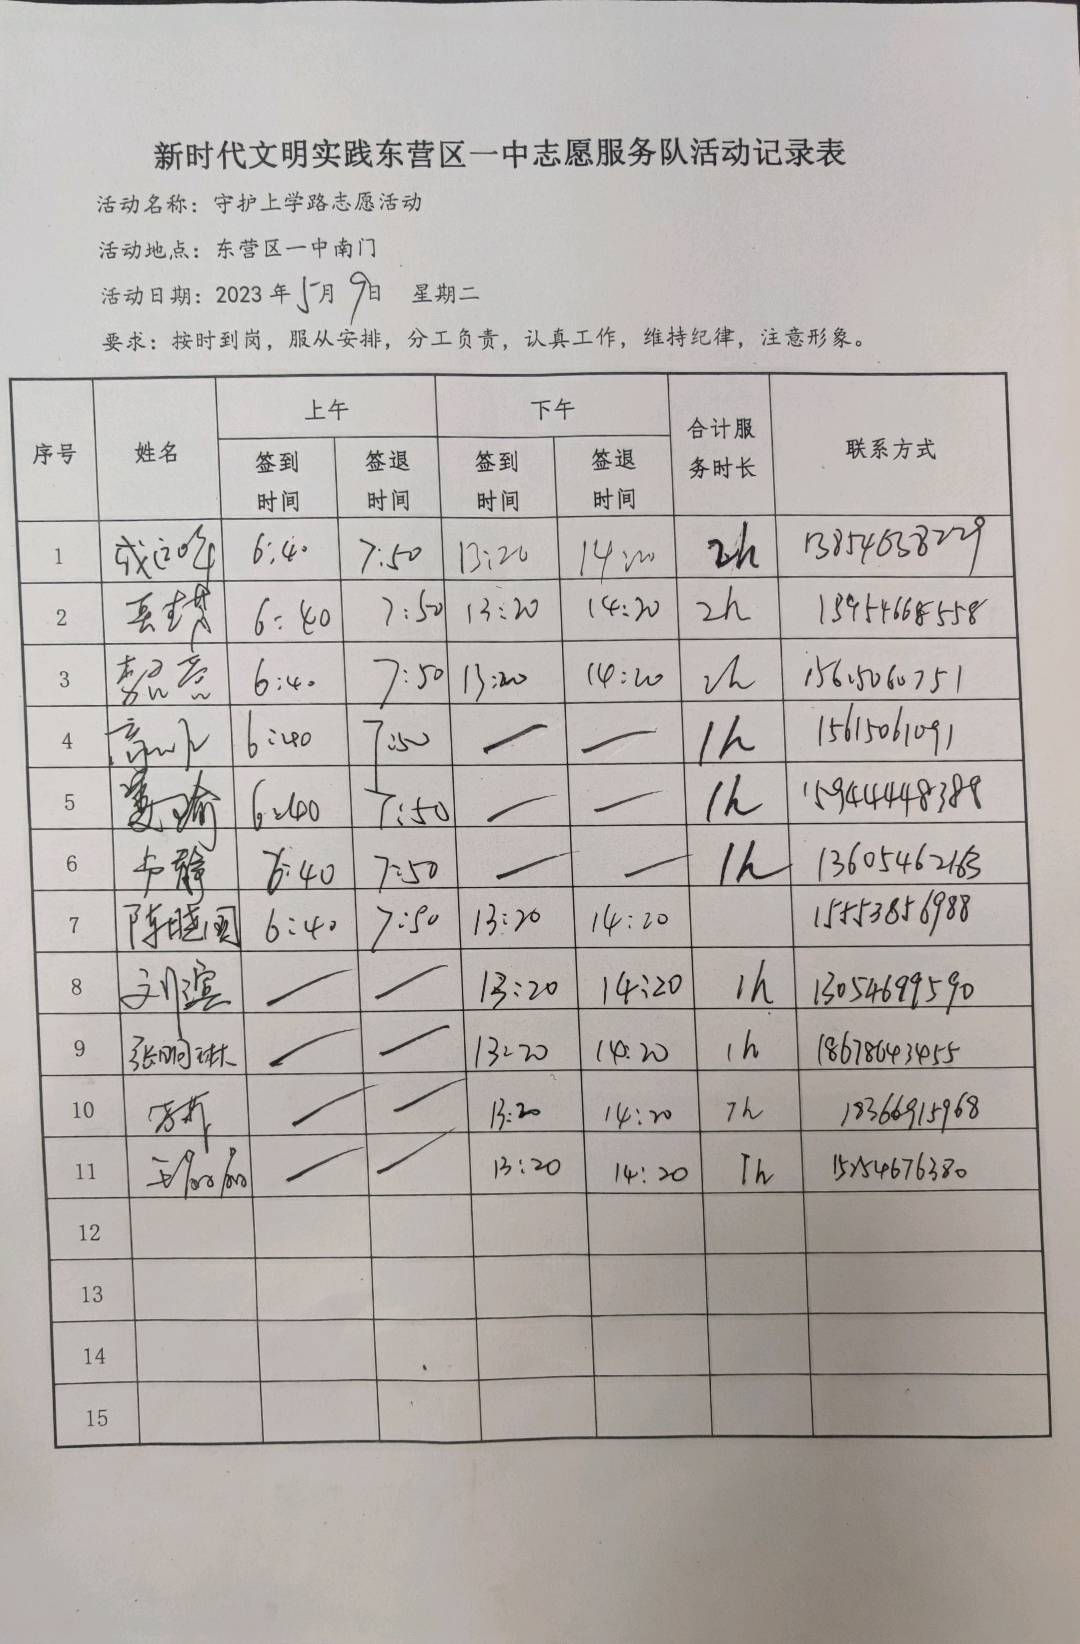 新时代文明实践东营区一中志愿服务队活动记录表
活动名称：守护上学路志愿活动
活动地点：东营区一中南门
活动日期：2023年5月9日 星期二
要求：按时到岗，服从安排，分工负责，认真工作，维持纪律，注意形象。
序号 姓名 上午 下午 合计服务时长 联系方式
签到时间 签退时间 签到时间 签退时间
1 6:40 7:50 13:20 14:20 2h 13854638229
2 6:40 7:50 13:20 14:20 2h 13954668558
3 6:40 7:50 13:20 14:20 2h 15615060751
4 6:40 7:50 — — 1h 15615061091
5 6:40 7:50 — — 1h 15944448389
6 6:40 7:50 — — 1h 13605462163
7 陈晓国 6:40 7:50 13:20 14:20 15553856988
8 刘滨 — — 13:20 14:20 1h 13054699590
9 张明琳 — — 13:20 14:20 1h 18678643455
10 — — 13:20 14:20 1h 18366915968
11 — — 13:20 14:20 1h 15254676380
12
13
14
15